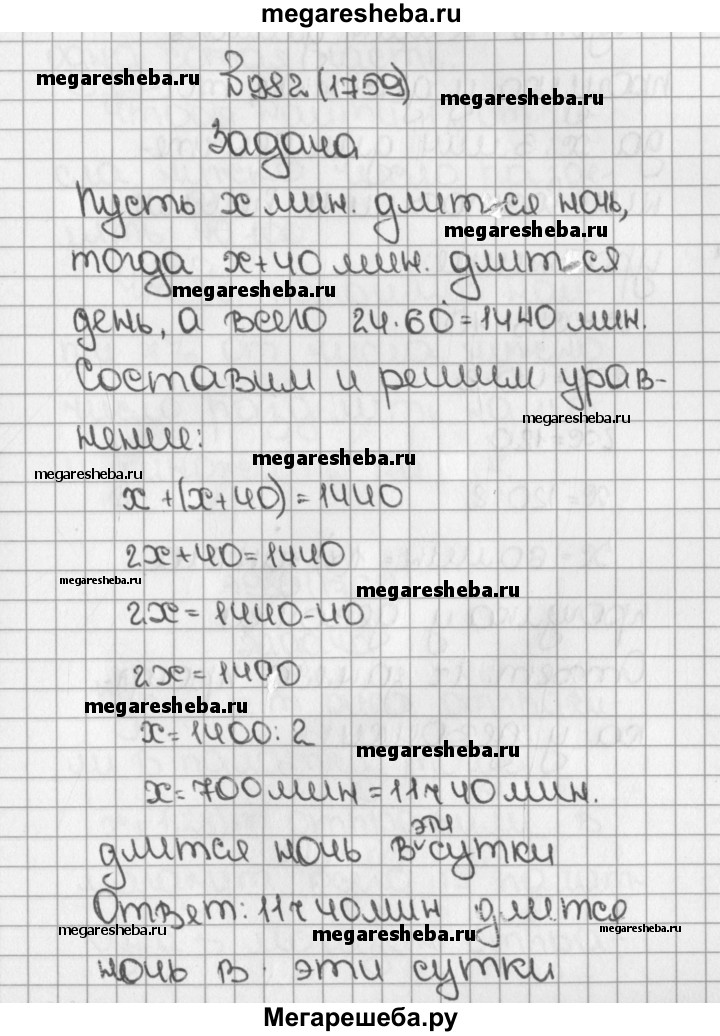 megaresheba.ru
megaresheba.ru
№982 (1759)
megaresheba.ru
Задача
Пусть x мин. длится ночь,
megaresheba.ru
тогда x+40 мин. длится
megaresheba.ru
день, а всего 24·60=1440 мин.
Составим и решим урав-
megaresheba.ru
нение:
megaresheba.ru
megaresheba.ru
x+(x+40)=1440
2x+40=1440
megaresheba.ru
megaresheba.ru
2x=1440-40
2x=1400
megaresheba.ru
x=1400:2
megaresheba.ru
x=700мин=11ч 40мин.
эти
длится ночь в сутки
Ответ: 11ч 40мин длится
megaresheba.ru
megaresheba.ru
megaresheba.ru
ночь в эти сутки
Мегарешеба.ру